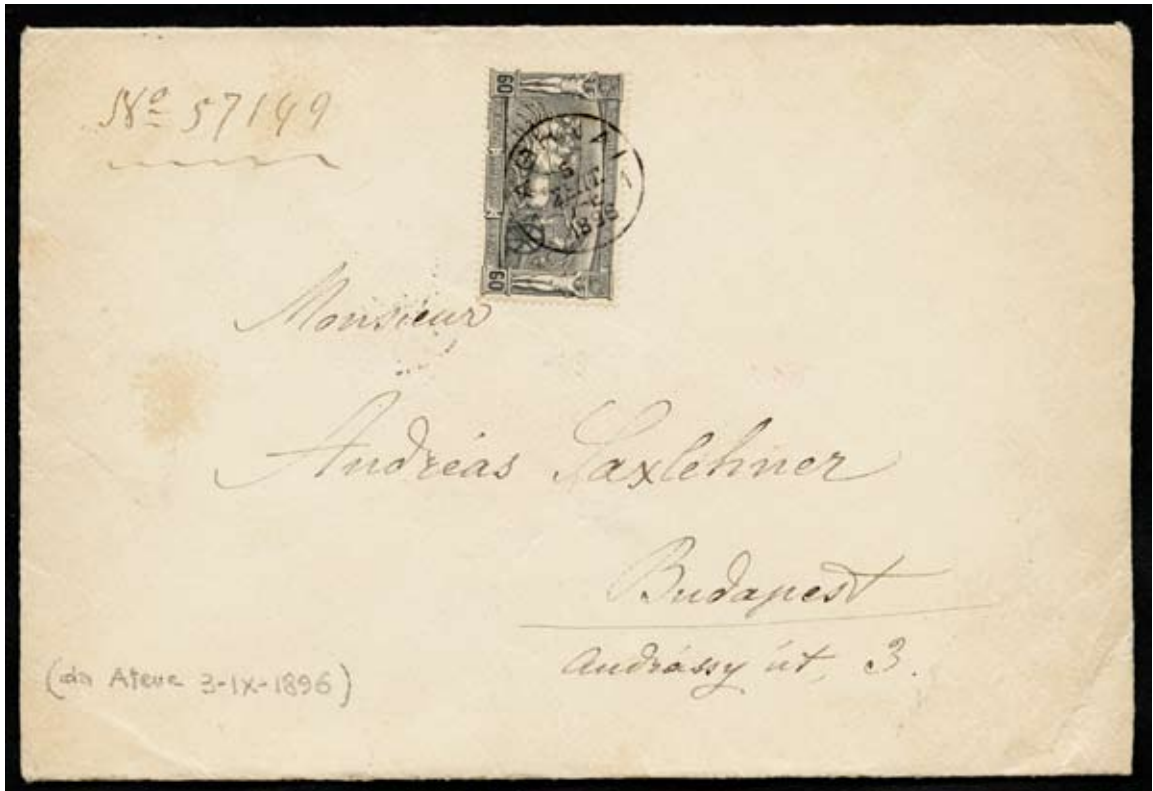 Nº 57149
60
ΑΘΗΝΑΙ 1
5
ΣΕΠΤ.
1896
60
Monsieur
Andréas Saxlehner
Budapest
Andrássy út, 3.
(da Atene 3-IX-1896)